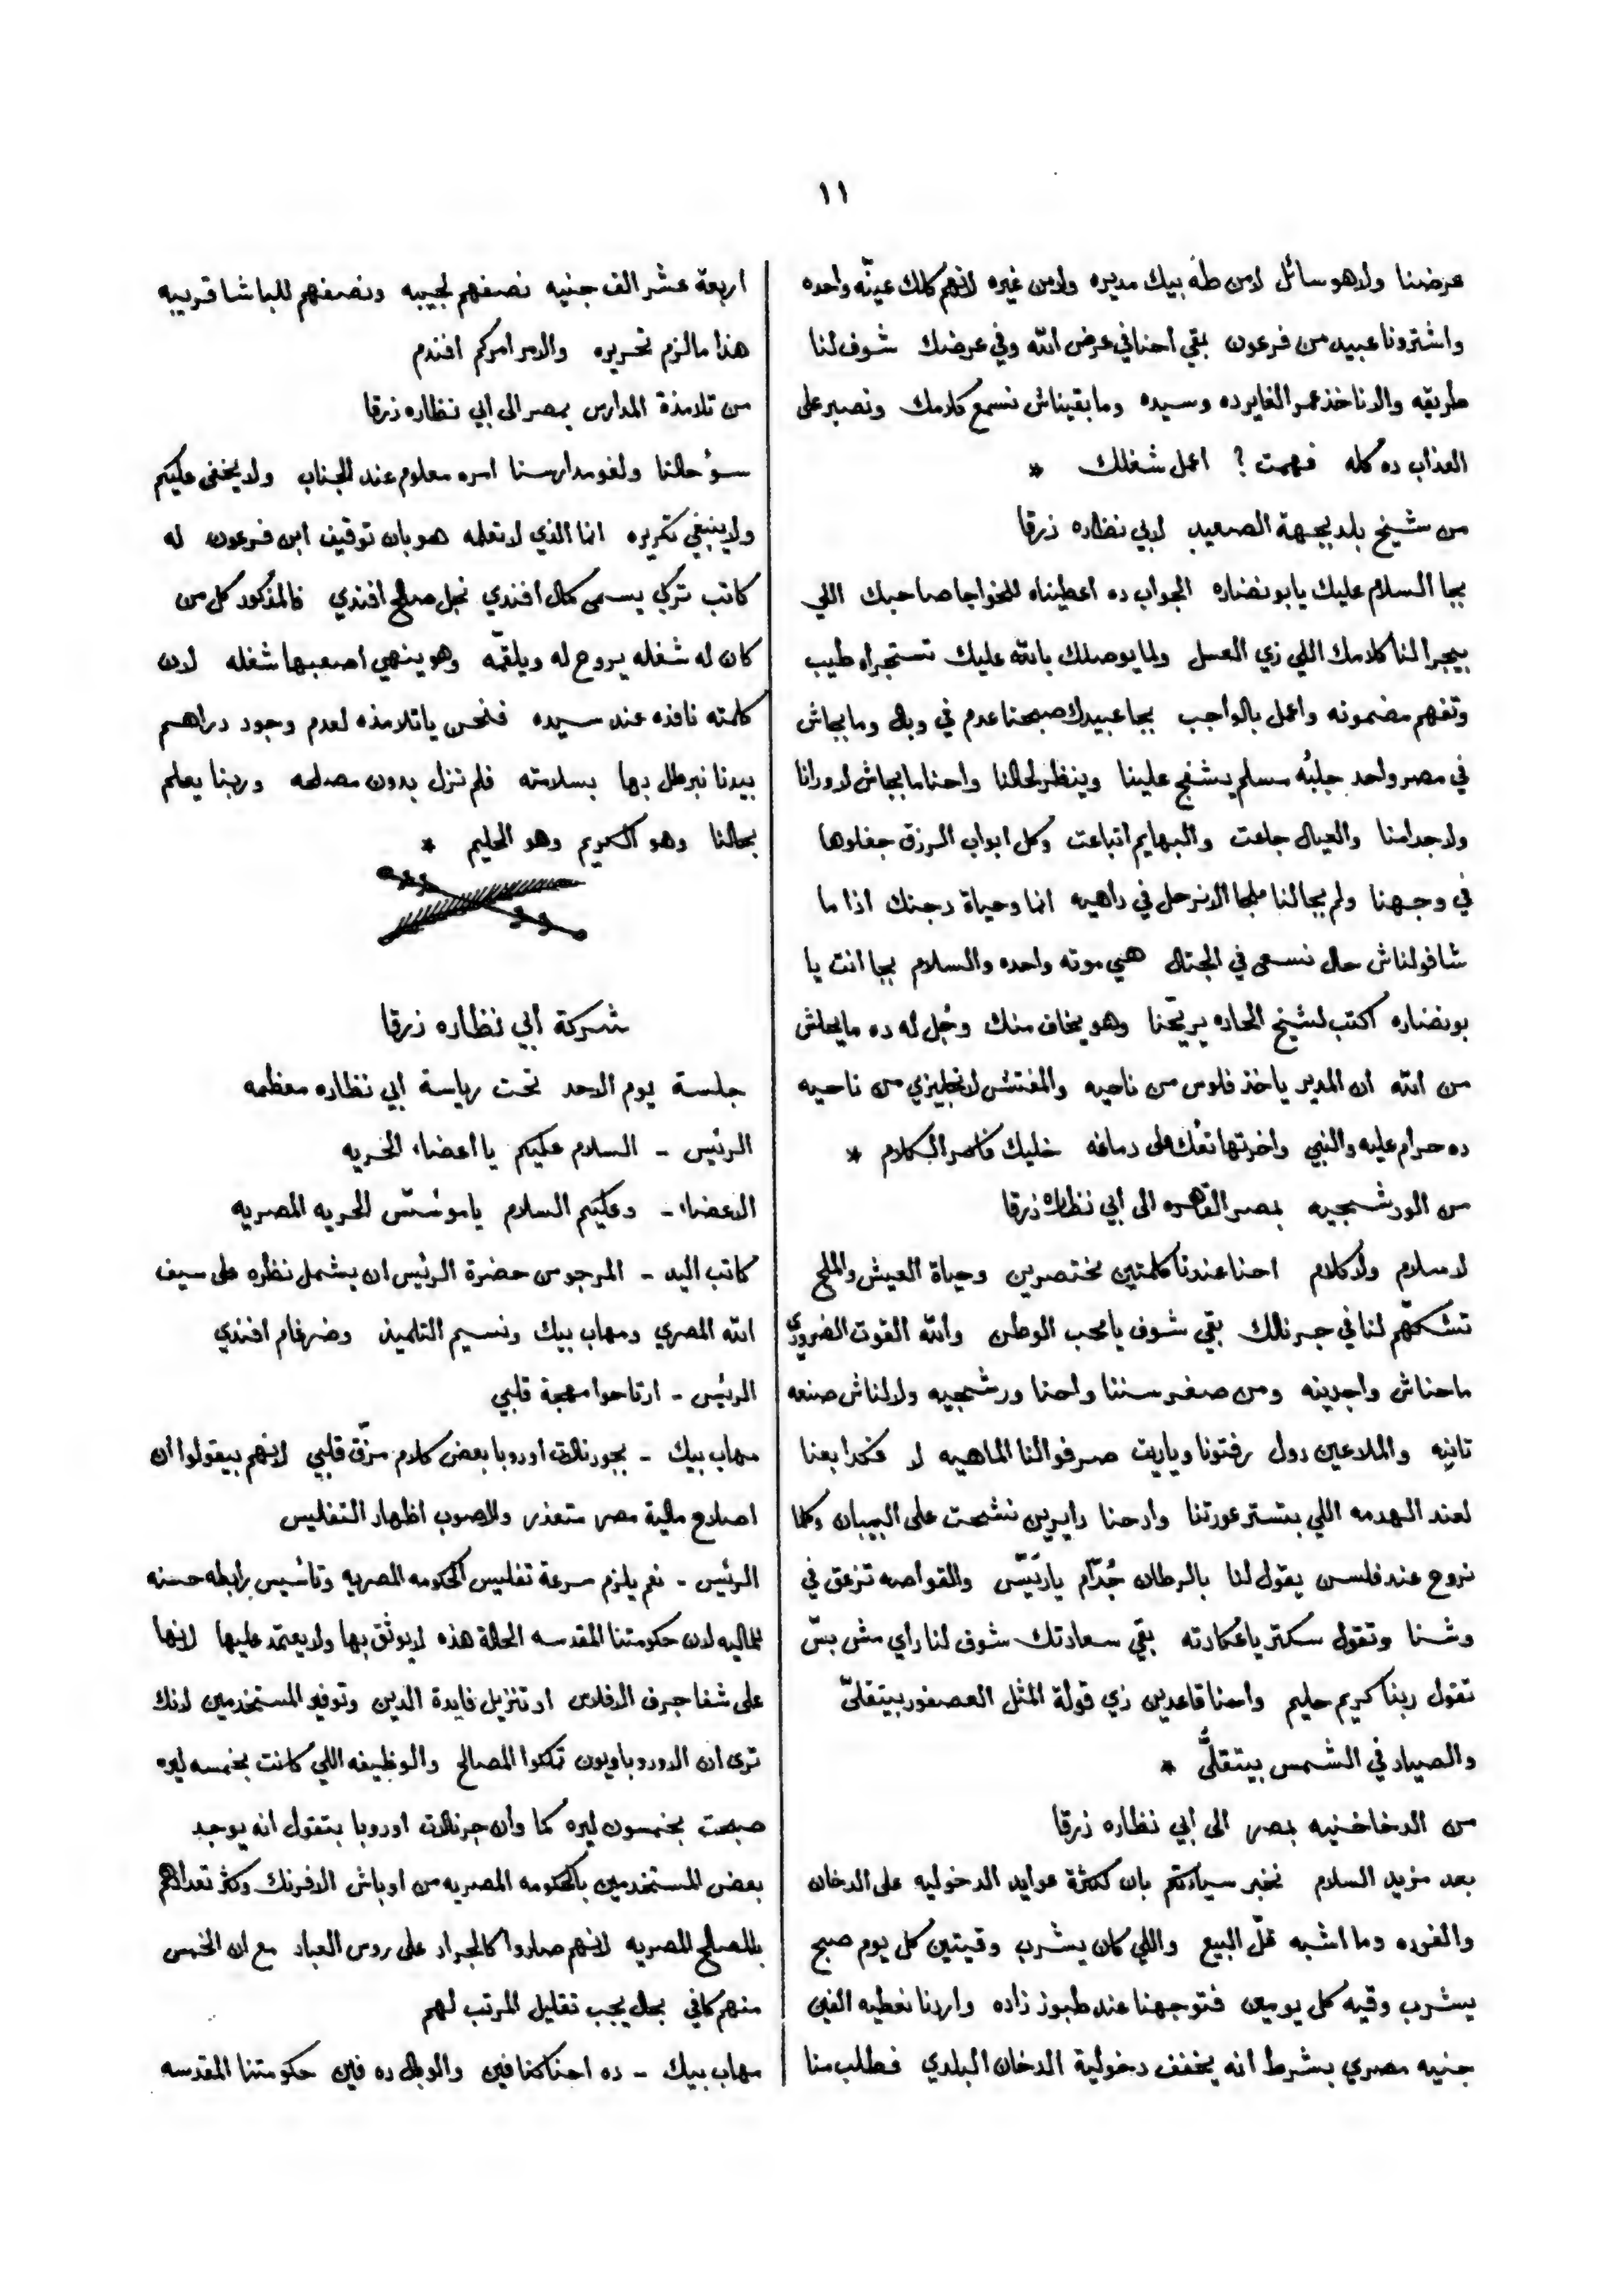 ١١
عرضنا ولا هو سائل لا من طه بيك مديره ولا من غيره لانهم كلك عينّه واحده
واشترونا عبيد من فرعون بقي احنا في عرض الله وفي عرضك شوف لنا
طريقه والا ناخذ عمر الغاير ده وسيده وما بقيناش نسمع كلامك ونصبر على
العذاب ده كله فهمت ؟ اعمل شغلك *
من شيخ بلد بجهة الصعيد لابي نظاره زرقا
بجا السلام عليك يابو نضاره الجواب ده اعطيناه للخواجا صاحبك اللي
بيجرا لنا كلامك اللي زي العسل ولما يوصلك بالله عليك تستجراه طيب
وتفهم مضمونه واعمل بالواجب بجا عبيدك صبحنا عدم في وبال وما بجاش
في مصر واحد جلبُه مسلم يشفج علينا وينظر لحالنا واحنا ما بجاش لا ورانا
ولا جدامنا والعيال جاعت والبهايم اتباعت وكل ابواب الرزق جفلوها
في وجهنا ولم بجالنا ملجا الا نرحل في داهيه انما وحياة دجنك اذا ما
شافولناش حال نسعى في الجتال هي موته واحده والسلام بجا انت يا
بو نضاره اكتب لشيخ الحاره يريّحنا وهو يخاف منك وجُل له ده ما يحلش
من الله ان المدير ياخذ فلوس من ناحيه والمفتش لانجليزي من ناحيه
ده حرام عليه والنبي واخرتها تفك على دماغه خليك فاكر الكلام *
من الورشجيه بمصر القاهره الى ابي نظاره زرقا
لا سلام ولا كلام احنا عندنا كلمتين مختصرين وحياة العيش والملح
تشكّهم لنا في جرنالك بقي شوف يا محب الوطن والله القوت الضروري
ماحناش واجدينه ومن صغر سننا واحنا ورشجيه ولا لناش صنعه
تانيه والملاعين دول رفتونا وياريت صرفوا لنا الماهيه لا فكدا بعنا
لعند الهدمه اللي بتستر عورتنا وادحنا دايرين نشحت على البيبان وكلما
نروح عند فلسن يقول لنا بالرطان جُدّام ياريّس والقواصه تزعق في
وشنا وتقول سكتر ياعكادته بقي سعادتك شوف لنا راي مش بسّ
تقول ربنا كريم حليم واحنا قاعدين زي قولة المثل العصفور بيتقلىّ
والصياد في الشمس بيتقلىَّ *
من الدخاخنيه بمصر الى ابي نظاره زرقا
بعد مزيد السلام نخبر سيادتكم بان كثرة عوايد الدخوليه على الدخان
والفرده وما اشبه قلّ البيع واللي كان يشرب وقيتين كل يوم صبح
يشرب وقيه كل يومين فتوجهنا عند طبوز زاده واردنا نعطيه الفين
جنيه مصري بشرط انه يخفف دخولية الدخان البلدي فطلب منا
اربعة عشر الف جنيه نصفهم لجيبه ونصفهم للباشا قريبه
هذا مالزم تحريره والامر امركم افندم
من تلامذة المدارس بمصر الى ابي نظاره زرقا
سوُ حالنا ولغو مدارسنا امره معلوم عند الجناب ولا يخفى عليكم
ولا ينبغي تكريره انما الذي لا تعلمه هو بان توقيف ابن فرعون له
كاتب تركي يسمى كمال افندي نجل صالح افندي فالمذكور كل من
كان له شغله يروح له ويلقمّه وهو ينهي اصعبها شغله لان
كلمته نافذه عند سيده فنحن ياتلامذه لعدم وجود دراهم
بيدنا نبرطل بها بسلامته فلم نزل بدون مصلحه وربنا يعلم
بحالنا وهو الكريم وهو الحليم *
شركة ابي نظاره زرقا
جلسة يوم الاحد تحت رياسة ابي نظاره معظمه
الرئيس - السلام عليكم يا اعضاء الحريه
الاعضاء - وعليكم السلام ياموسّس الحريه المصريه
كاتب اليد - المرجو من حضرة الرئيس ان يشمل نظره على سيف
الله المصري ومهاب بيك ونسيم التلميذ وضرغام افندي
الرئيس - ارتاحوا مهجة قلبي
مهاب بيك - بجورنالات اوروبا بعض كلام مزّق قلبي لانهم بيقولوا ان
اصلاح مالية مصر متعذر ولاصوب اظهار التفليس
الرئيس - نعم يلزم سرعة تفليس الحكومه المصريه وتاسيس رابطه حسنه
للماليه لان حكومتنا المقدسه الحالة هذه لا يوثق بها ولا يعتمد عليها لانها
على شفا جرف الافلاس او تنزيل فايدة الدين وتوفير المستخدمين لانك
ترى ان الاوروباويون تملكوا المصالح والوظيفه اللي كانت بخمسه ليره
صبحت بخمسون ليره كما وان جرنالات اوروبا بتقول انه يوجد
بعض المستخدمين بالحكومه المصريه من اوباش الافرنك وكثر تعدادهم
بالمصالح المصريه لانهم صاروا كالجراد على روس العباد مع ان الخمس
منهم كافي بحال يجب تقليل المرتب لهم
مهاب بيك - ده احنا كنا فين والوبال ده فين حكومتنا المقدسه